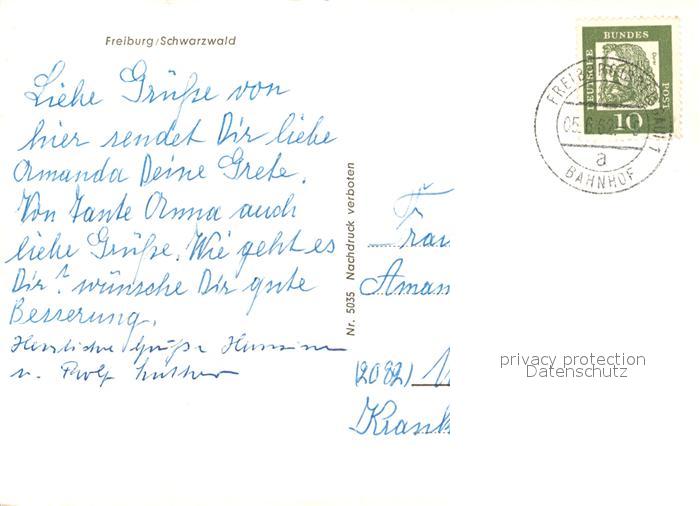 Freiburg/Schwarzwald
Liebe Grüße von
hier sendet Dir liebe
Amanda Deine Grete.
Von Tante Anna auch
liebe Grüße. Wie geht es
Dir? wünsche Dir gute
Besserung.
Herzliche Grüße
u. Rolf
Nr. 5035 Nachdruck verboten
DEUTSCHE BUNDES POST
10
BAHNHOF
a
Frau
Aman
(2082)
Krank
privacy protection
Datenschutz